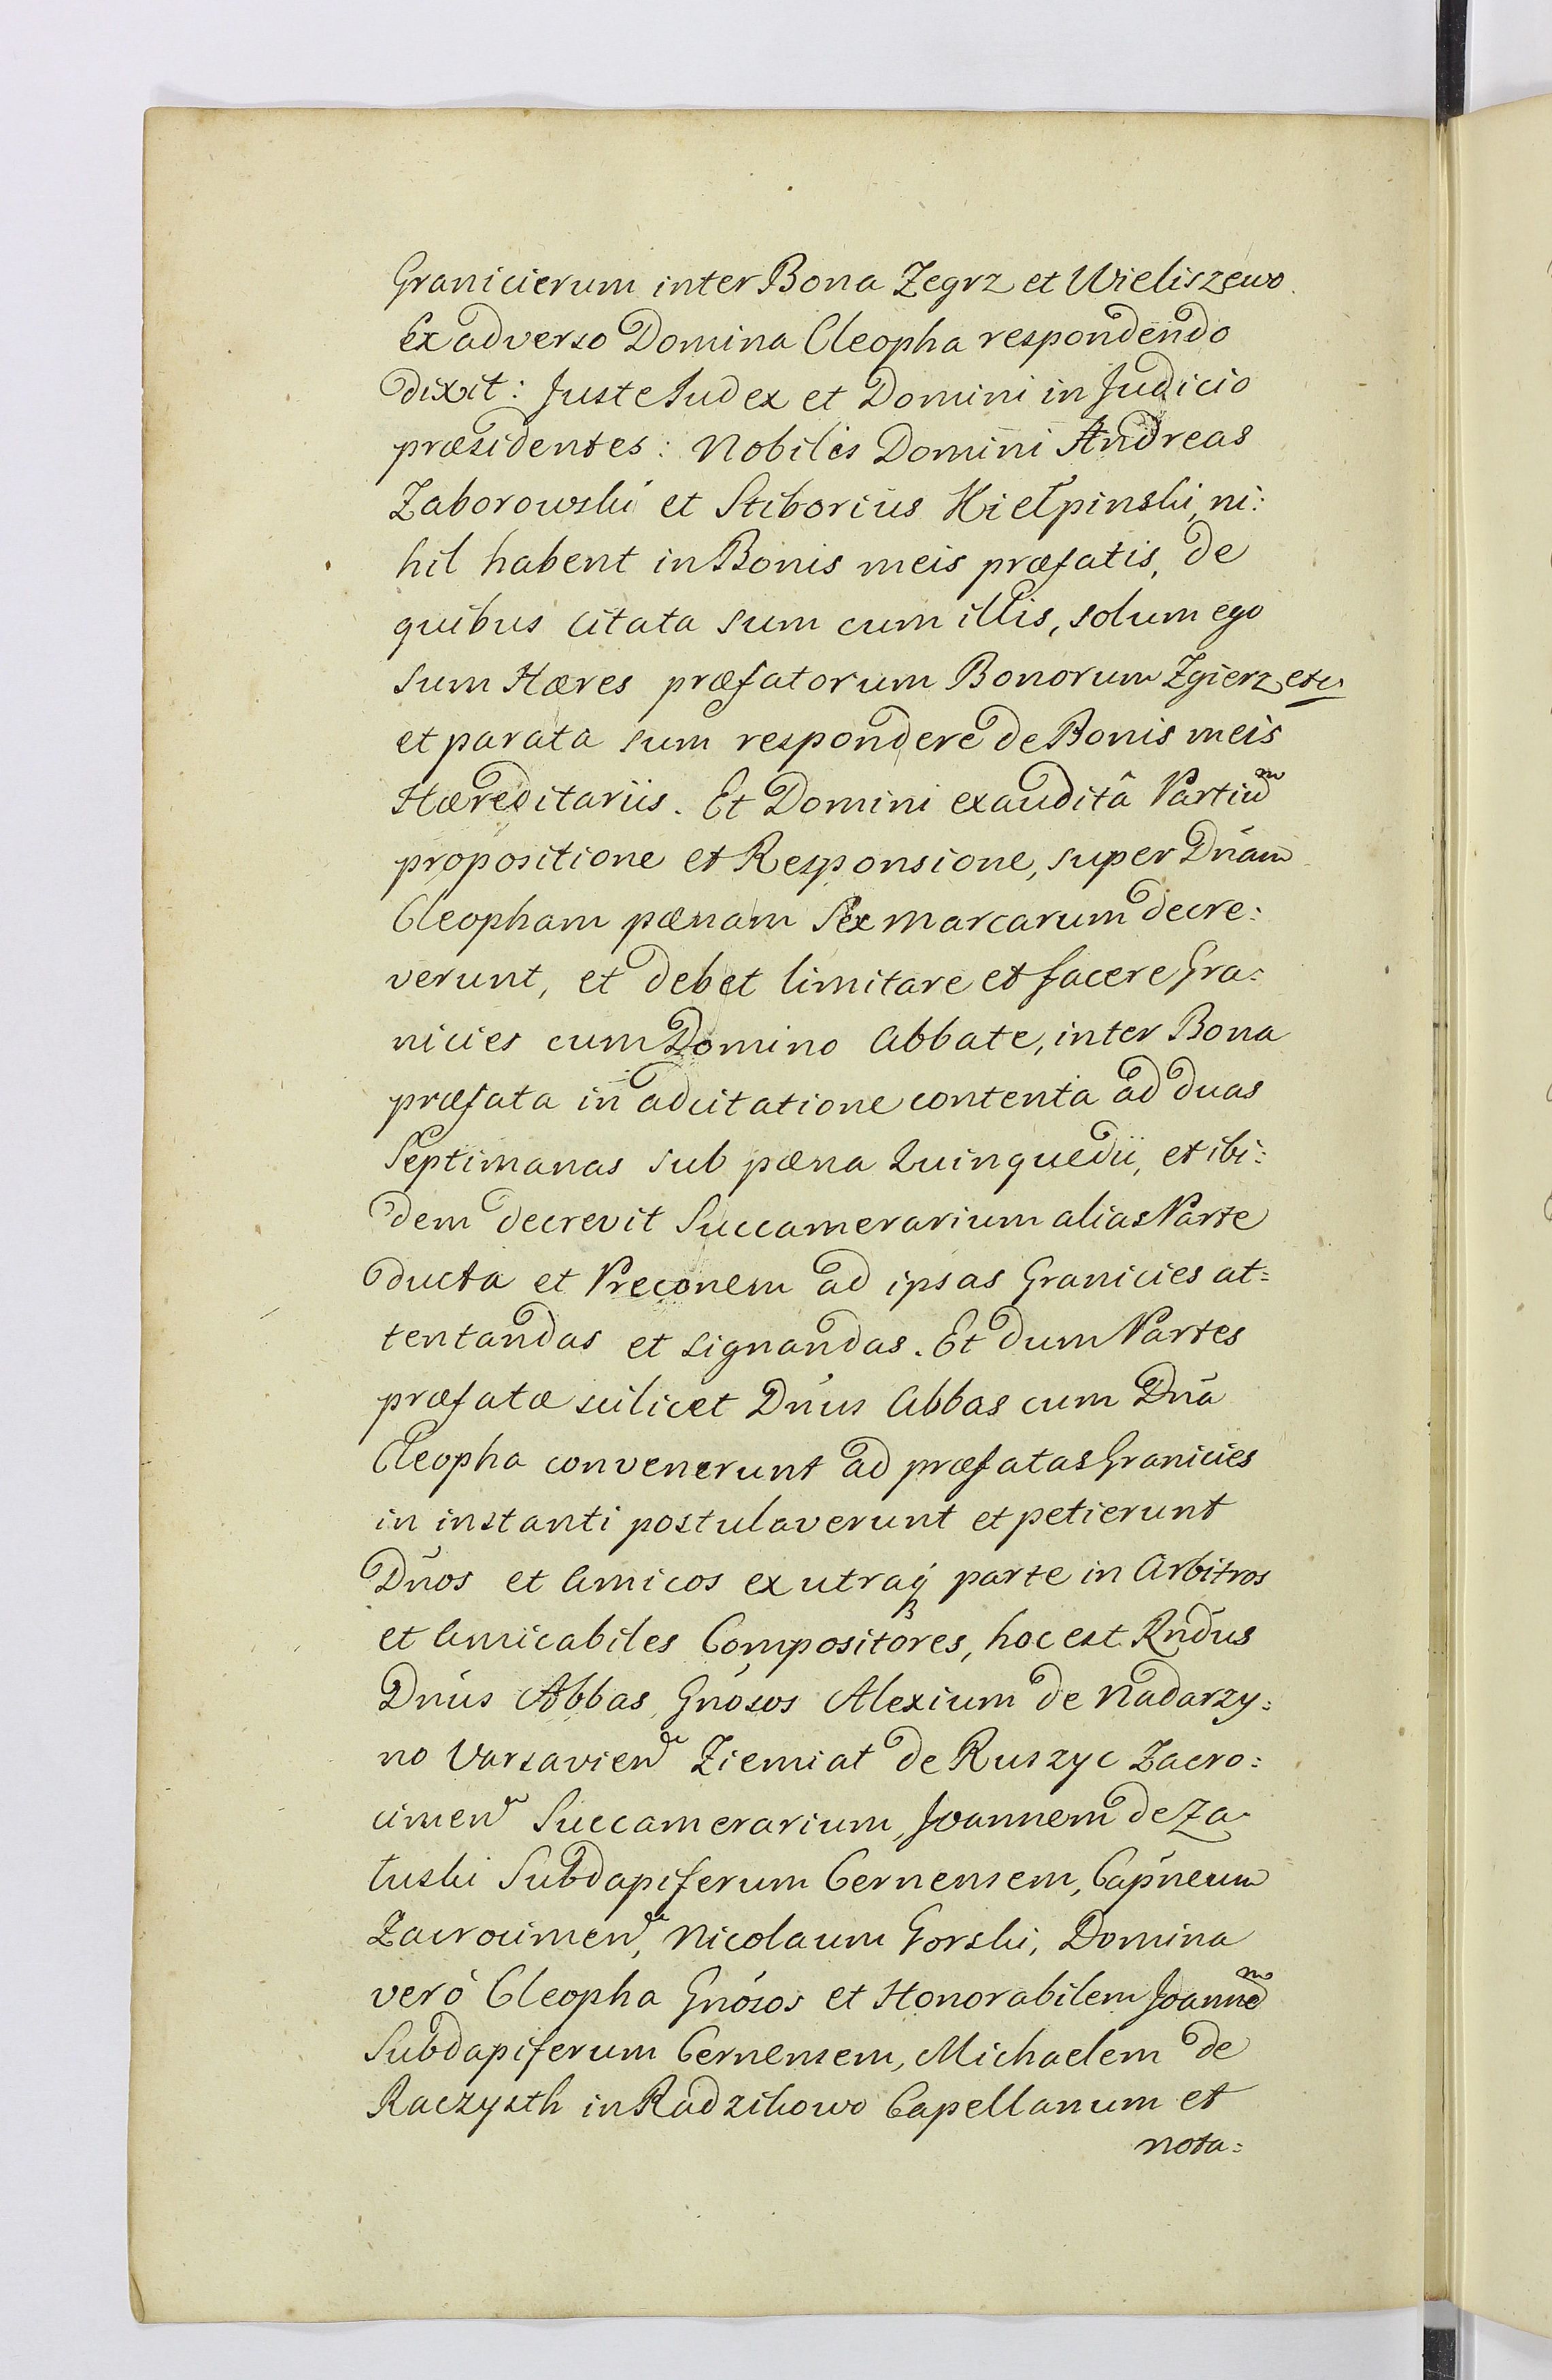 Granicierum inter Bona Zegrz et Wieliszewo.
Ex adverso Domina Cleopha respondendo
dixit: Juste Judex et Domini in Judicio
præsidentes: Nobiles Domini Andreas
Zaborowski et Stiborius Kiełpinski, ni:
hil habent in Bonis meis præfatis, de
quibus citata sum cum illis, solum ego
sum Hæres præfatorum Bonorum Zgierz etc
et parata sum respondere de Bonis meis
Hæreditariis. Et Domini exauditâ Partiũ
propositione et Responsione, super Dnam
Cleopham pænam sex marcarum decre:
verunt, et debet limitare et facere Gra:
nicies cum Domino Abbate, inter Bona
præfata in adcitatione contenta ad duas
Septimanas sub pæna Quinquedii, et ibi:
dem decrevit Succamerarium alias Parte
ducta et Preconem ad ipsas Granicies at=
tentandas et signandas. Et dum Partes
præfatæ scilicet Dnus Abbas cum Dna
Cleopha convenerunt ad præfatas Granicies
in instanti postulaverunt et petierunt
Dnos et Amicos ex utraq parte in Arbitros
et Amicabiles Compositores, hoc est Rndus
Dnus Abbas, Gnosos Alexium de Nadarzy:
no Varsavien Ziemiat de Ruszyc Zacro:
cimen Succamerarium, Joannem de Za
tuski Subdapiferum Cernensem, Capneum
Zacrocimen, Nicolaum Gorski, Domina
verò Cleopha Gnosos et Honorabilem Joannẽ
Subdapiferum Cernensem, Michaelem de
Raczysth in Radzikowo Capellanum et
nota: